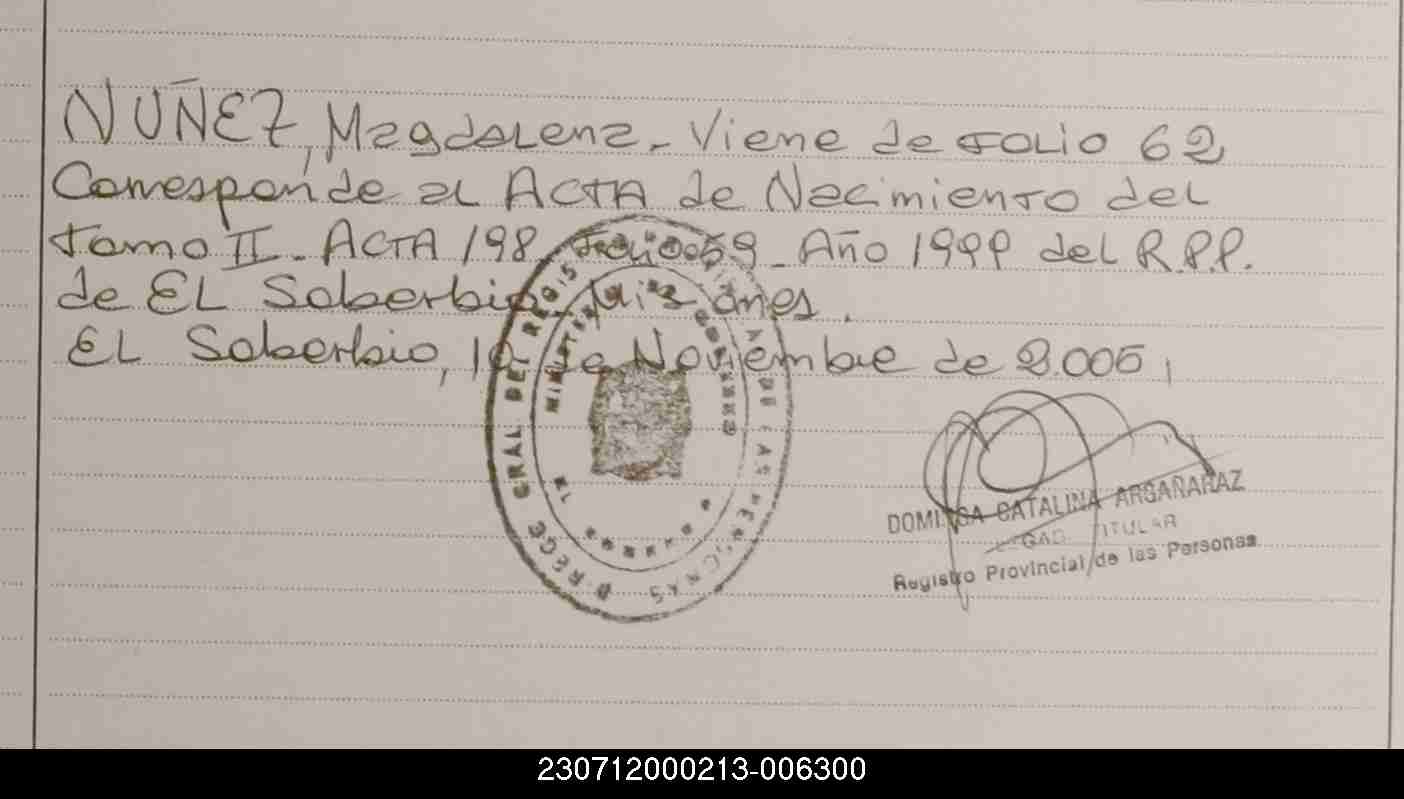 NUÑEZ, Magdalena. Viene de Folio 62
Corresponde al ACTA de Nacimiento del
tomo II. ACTA 198, Folio 059. Año 1999 del R.P.P.
de EL Soberbio, Misiones.
EL Soberbio, 10 de Noviembre de 2.005,
GRAL DEL REGIS DE LAS PERSONAS
MINISTER GOBIERNO
DOMINGA CATALINA ARGAÑARAZ
TITULAR
Registro Provincial de las Personas
230712000213-006300